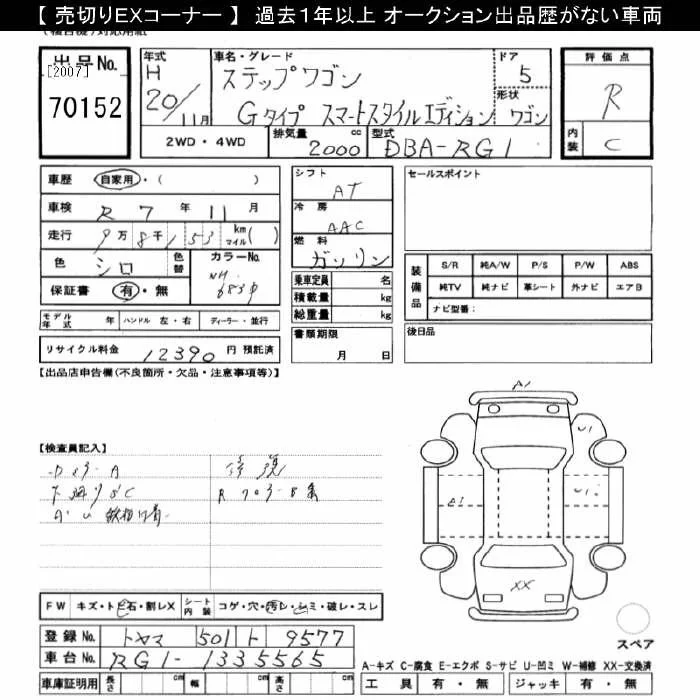 【 売切りEXコーナー 】 過去1年以上 オークション出品歴がない車両
出品No.
[2007]
70152
年式
H
20/11月
車名・グレード
ステップワゴン
Gタイプ スマートスタイルエディション
ドア
5
形状
ワゴン
評価点
R
内装
C
2WD・4WD
排気量
2000 cc
型式
DBA-RG1
車歴 自家用・( )
車検 R 7 年 11 月
走行 9万 8千 153 km マイル( )
色 シロ 色替
カラーNo.
保証書 有・無
モデル年式 年 ハンドル 左・右 ディーラー・並行
リサイクル料金 12390 円 預託済
シフト
AT
冷房
AAC
燃料
ガソリン
乗車定員 名
積載量 kg
総重量 kg
書類期限
月 日
セールスポイント
装備品
S/R 純A/W P/S P/W ABS
純TV 純ナビ 革シート 外ナビ エアB
ナビ型番:
後日品
【出品店申告欄(不良箇所・欠品・注意事項等)】
【検査員記入】
下廻りSC
A1
U1
A1
U1
XX
スペア
FW キズ・トビ石・割レX シート内装 コゲ・穴・汚レ・シミ・破レ・スレ
登録No. トヤマ 501 ト 9577
車台No. RG1-1335565
車庫証明用 長さ cm 幅 cm 高さ cm
A-キズ C-腐食 E-エクボ S-サビ U-凹ミ W-補修 XX-交換済
工具 有・無 ジャッキ 有・無